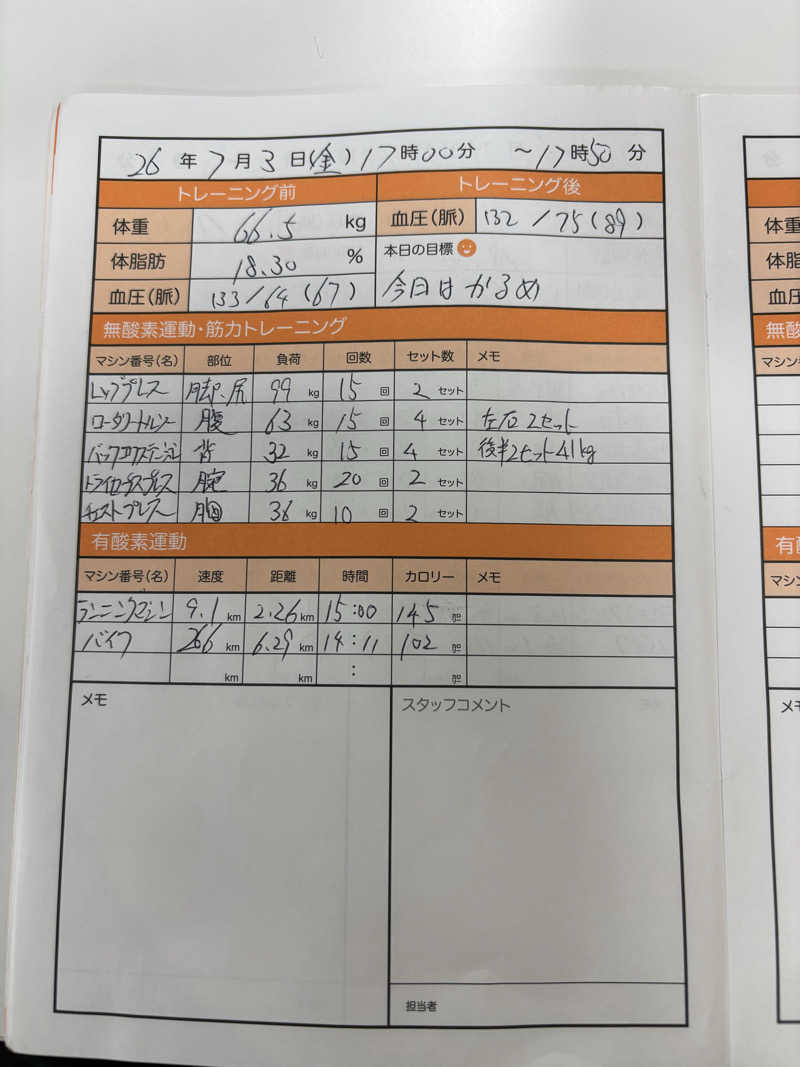 26 年 7 月 3 日(金) 17 時 00 分 ～ 17 時 50 分
トレーニング前 トレーニング後
体重 66.5 kg 血圧(脈) 132 / 75 (89)
体脂肪 18.30 % 本日の目標
血圧(脈) 133/64 (67) 今日はかるめ
無酸素運動・筋力トレーニング
マシン番号(名) 部位 負荷 回数 セット数 メモ
レッグプレス 脚、尻 99 kg 15 回 2 セット
ロータリートルソー 腹 63 kg 15 回 4 セット 左右2セット
バックエクステンション 背 32 kg 15 回 4 セット 後半2セット41kg
トライセプスプレス 腕 36 kg 20 回 2 セット
チェストプレス 胸 36 kg 10 回 2 セット
有酸素運動
マシン番号(名) 速度 距離 時間 カロリー メモ
ランニングマシン 9.1 km 2.26 km 15:00 145 ㌍
バイク 266 km 6.29 km 14:11 102 ㌍
km km : ㌍
メモ スタッフコメント
担当者
無酸
マシン
有酸
マシン
メモ